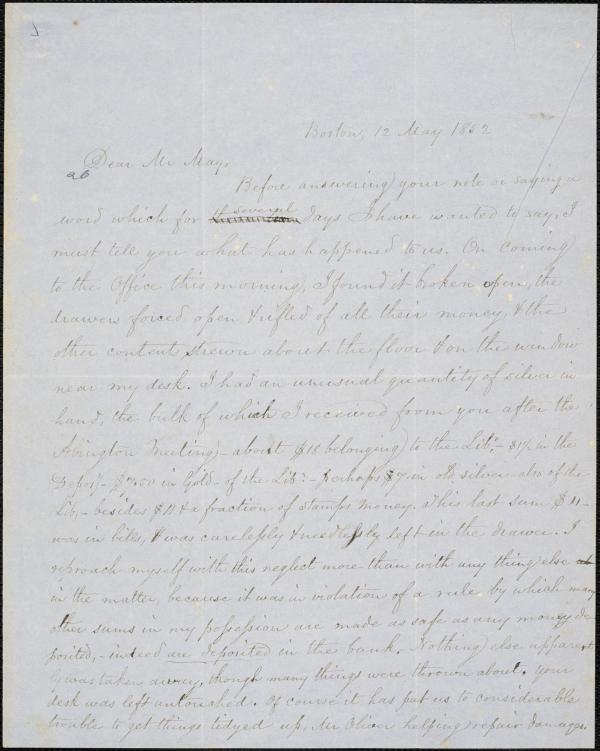 Boston, 12 May 1852
Dear Mr May,
Before answering your note or saying a
word which for several days I have wanted to say, I
must tell you what has happened to us. On coming
to the Office this morning, I found it broken open, the
drawers forced open & rifled of all their money, & the
other contents strewn about the floor & on the window
near my desk. I had an unusual quantity of silver in
hand, the bulk of which I received from you after the
Abington Meeting,- about $18 belonging to the Libr.- $17. in the
Depos'y- $7.50 in Gold- of the Libr.- perhaps $7. in old silver also of the
Lib,- besides $11 & a fraction of stamps money. This last sum $11-
was in bills, & was carelessly & needlessly left in the drawer. I
reproach myself with this neglect more than with any thing else
in the matter, because it was in violation of a rule by which many
other sums in my possession are made as safe as any money de-
posited,- indeed are deposited in the bank. Nothing else apparent-
ly was taken away, though many things were thrown about. Your
desk was left untouched. Of course it has put us to considerable
trouble to get things tidyed up, Mr Oliver helping repair damages.